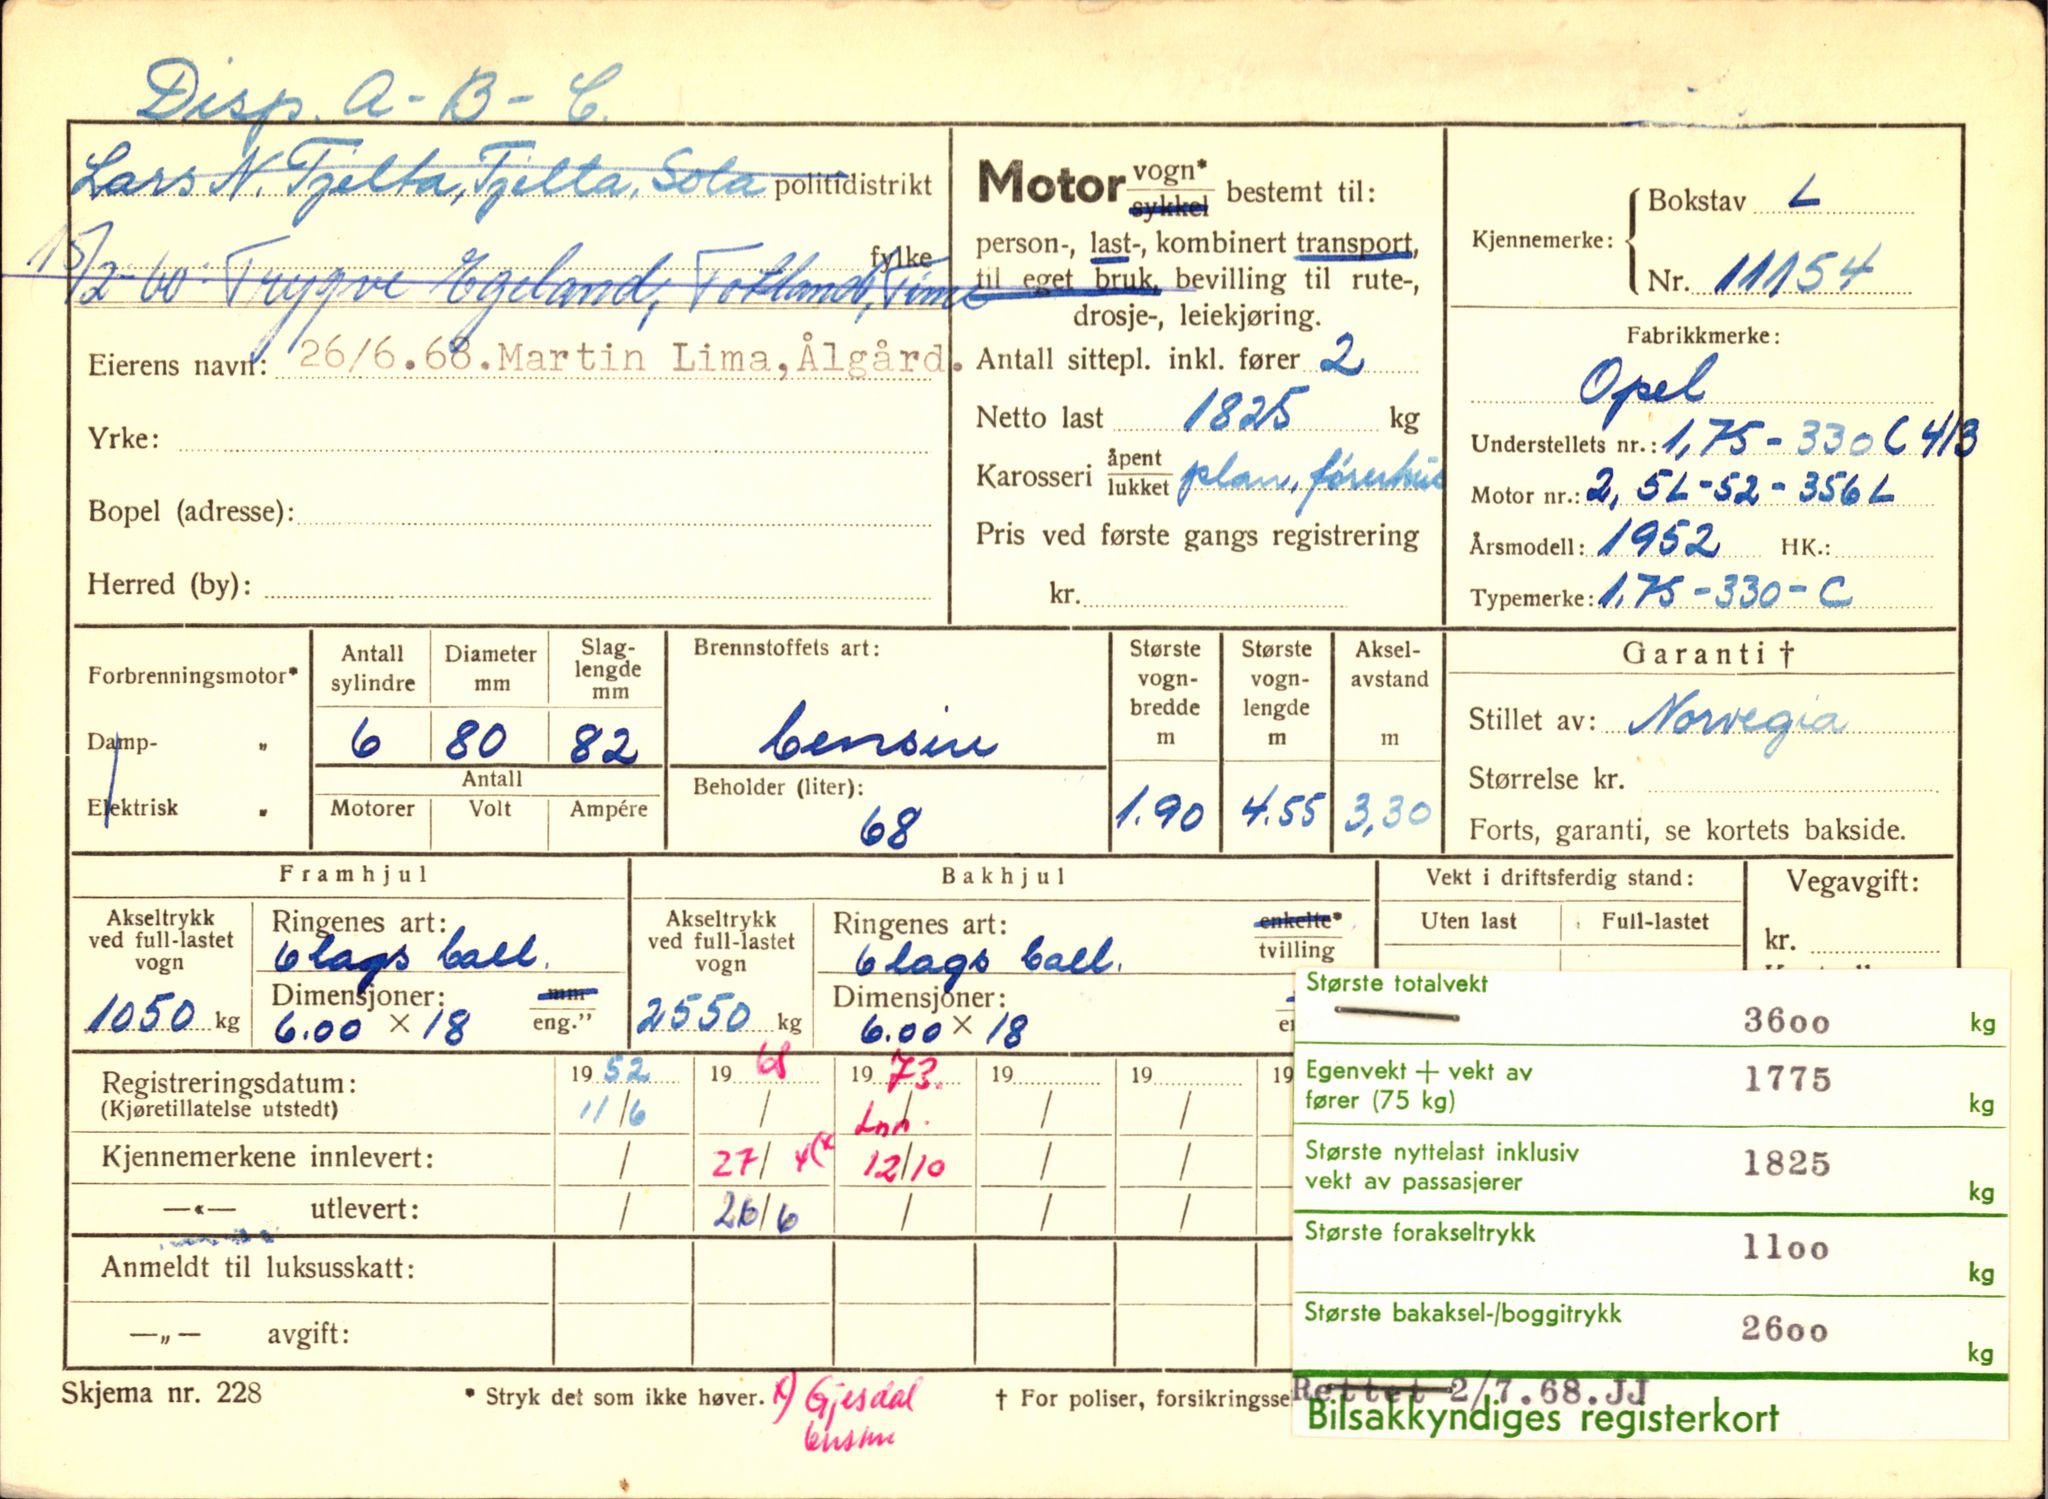 Disp. A - B - C.
Lars N. Tjelta, Tjelta, Sola politidistrikt
15/2-60 Trygve Egeland, Totland, Time fylke
Eierens navn: 26/6.68. Martin Lima, Ålgård.
Yrke:
Bopel (adresse):
Herred (by):
Motor vogn* sykkel bestemt til:
person-, last-, kombinert transport,
til eget bruk, bevilling til rute-,
drosje-, leiekjøring.
Antall sittepl. inkl. fører 2
Netto last 1825 kg
Karosseri åpent lukket plan, førerhus
Pris ved første gangs registrering
kr.
Kjennemerke: Bokstav L
Nr. 11154
Fabrikkmerke:
Opel
Understellets nr.: 1,75-330 C 413
Motor nr.: 2,5L-52-356L
Årsmodell: 1952 HK.:
Typemerke: 1,75-330-C
Forbrenningsmotor*
Damp- „
Elektrisk „
Antall sylindre
6
Diameter mm
80
Slag-lengde mm
82
Antall
Motorer Volt Ampére
Brennstoffets art:
bensin
Beholder (liter):
68
Største vogn-bredde m
1.90
Største vogn-lengde m
4.55
Aksel-avstand m
3,30
Garanti †
Stillet av: Norvegia
Størrelse kr.
Forts, garanti, se kortets bakside.
Framhjul
Akseltrykk ved full-lastet vogn
1050 kg
Ringenes art:
6 lags ball.
Dimensjoner: mm
6.00 × 18 eng.”
Bakhjul
Akseltrykk ved full-lastet vogn
2550 kg
Ringenes art: enkelte*
6 lags ball. tvilling
Dimensjoner:
6.00 × 18
Vekt i driftsferdig stand:
Uten last Full-lastet
Vegavgift:
kr.
Registreringsdatum: 19 52 19 68 19 73. 19 19 19
(Kjøretillatelse utstedt) 11/6 / / Inn. / /
Kjennemerkene innlevert: / 27/4 (x 12/10 / /
—«— utlevert: / 26/6 / / /
Anmeldt til luksusskatt:
—„— avgift:
Skjema nr. 228 * Stryk det som ikke høver. x) Gjesdal † For poliser, forsikringsse
Største totalvekt
3600 kg
Egenvekt + vekt av
fører (75 kg) 1775 kg
Største nyttelast inklusiv
vekt av passasjerer 1825 kg
Største forakseltrykk
1100 kg
Største bakaksel-/boggitrykk
2600 kg
Rettet 2/7.68.JJ
Bilsakkyndiges registerkort